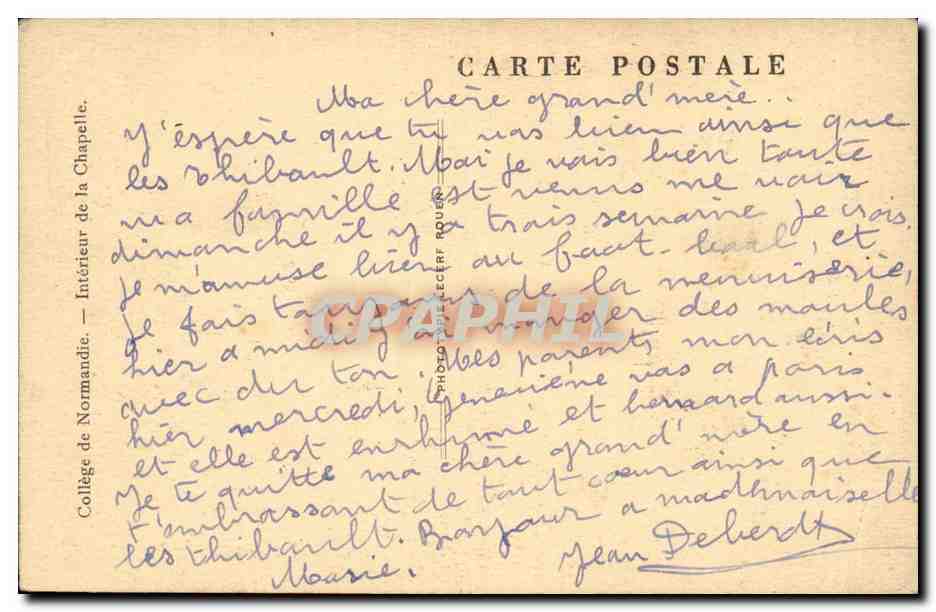 CARTE POSTALE
Collège de Normandie. — Intérieur de la Chapelle.
PHOTOTYPIE LECERF ROUEN
CPAPHIL
Ma chère grand'mère..
J'éspère que tu vas bien ainsi que
les Thibault. Moi je vais bien toute
ma famille est venus me voir
dimanche il y a trois semaine je crois.
je m'amuse bien au foot-baal, et
je fais toujours de la menuiserie,
hier a midi j'ai manger des moules
avec du ton. Mes parents mon écris
hier mercredi, geneviène vas a paris
et elle est enrhumé et bernard aussi.
Je te quitte ma chère grand'mère en
t'embrassant de tout cœur ainsi que
les Thibault. Bonjour a madmaiselle
Marie.
Jean Deberdt